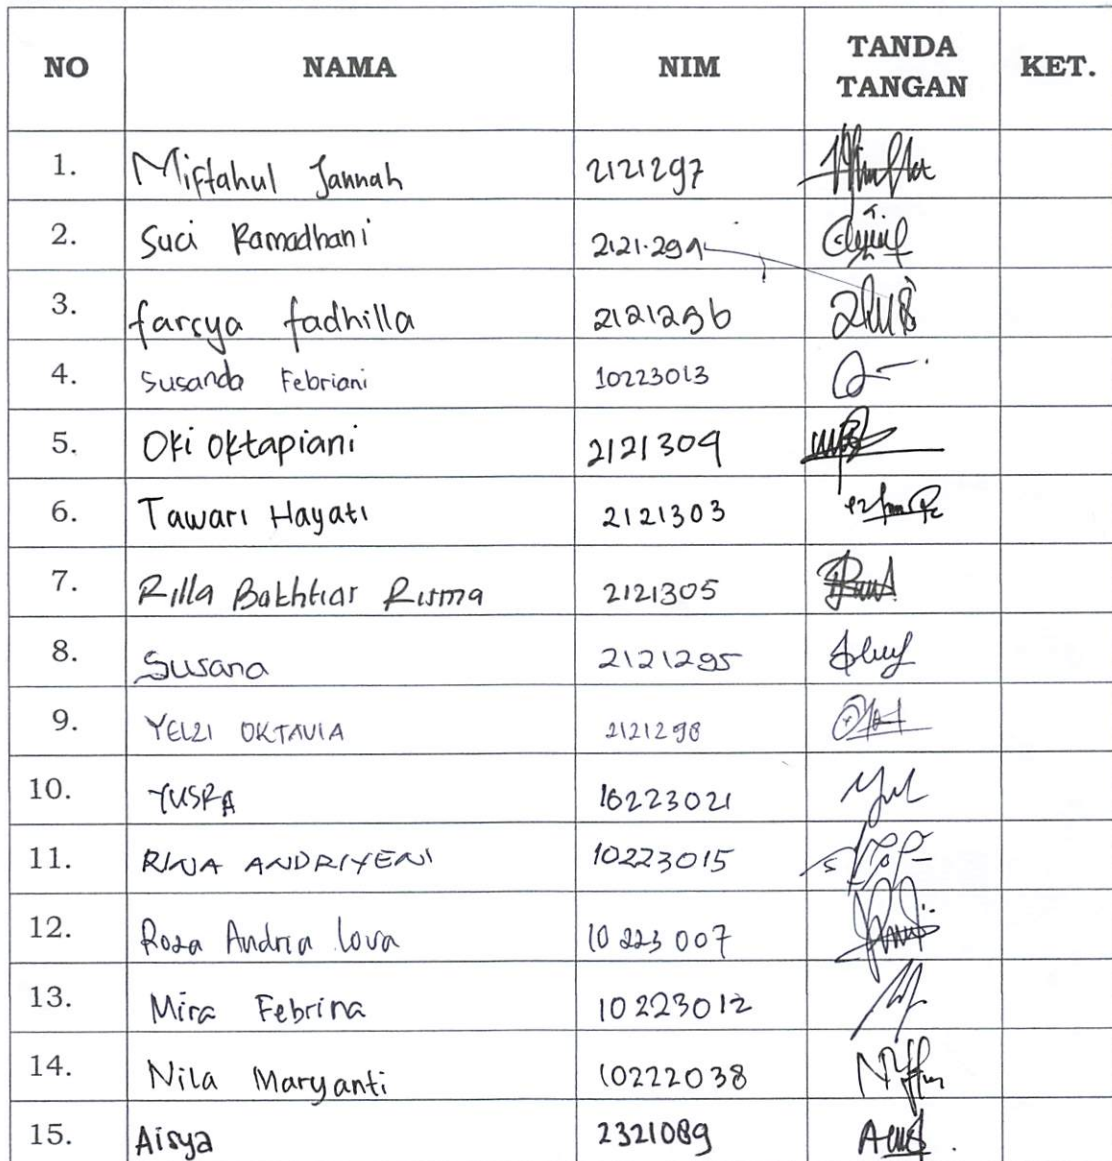 NO NAMA NIM TANDA TANGAN KET.
1. Miftahul Jannah 2121297
2. Suci Ramadhani 2121.299
3. farsya fadhilla 2121296
4. Susanda Febriani 10223013
5. Oki Oktapiani 2121304
6. Tawari Hayati 2121303
7. Rilla Bakhtiar Risma 2121305
8. Susana 2121295
9. YELZI OKTAVIA 2121298
10. YUSRA 10223021
11. RINA ANDRIYENI 10223015
12. Roza Andria Lova 10223007
13. Mira Febrina 10223012
14. Nila Maryanti 10222038
15. Aisya 2321089